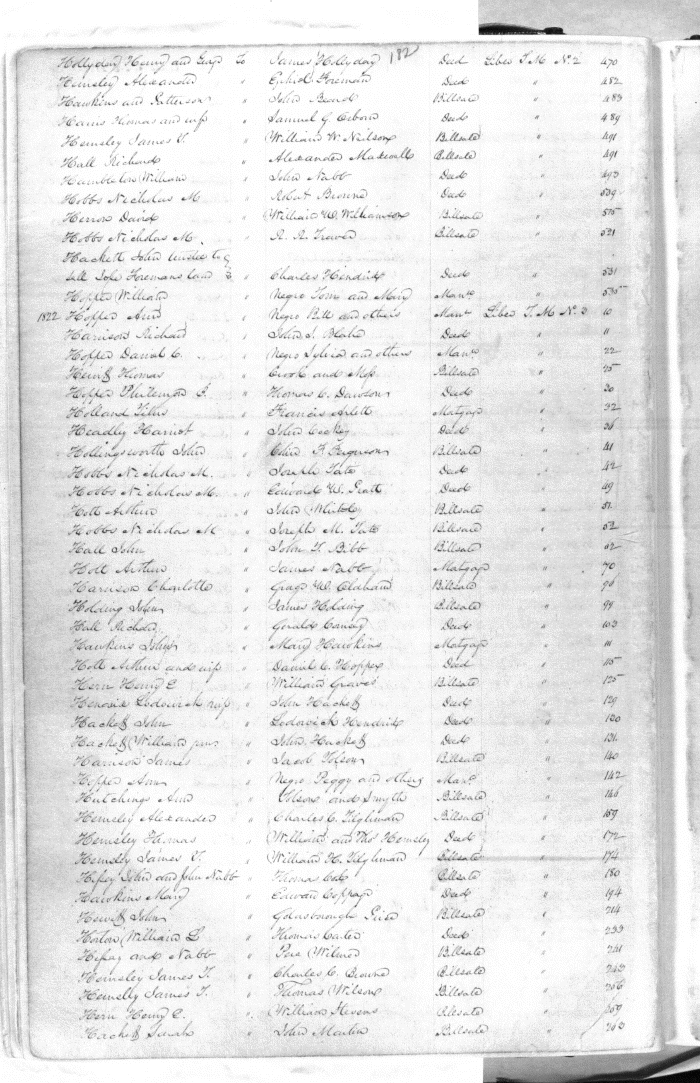 182
Hollyday Henry and Geo to James Hollyday Deed Liber T.M. No. 2 470
Hemsley Alexander " Foreman Deed " 482
Hawkins and Patterson " John Beard Billsale " 483
Harris Thomas and wife " Samuel G. Osborn Deed " 489
Hemsley James T. " William W. Neilson Billsale " 491
Hall Richard " Alexander Maxwell Billsale " 491
Hambleton William " John Nabb Deed " 493
Hobbs Nicholas M. " Robert Browne Deed " 539
Herron David " William W. Williamson Billsale " 515
Hobbs Nicholas M. " R. R. Traver Billsale " 521
Hackett John trustee to
sell John Foremans land to Charles Hendrix Deed " 531
Hopper William " Negro Tom and Mary Mano " 535
1822 Hopper Ann " Negro Bill and others Mano Liber T.M. No. 3 10
Harrison Richard " John S. Blake Deed " 11
Hopper Daniel C. " Negro Sylvia and others Mano " 22
Hewitt Thomas " Crook and Billsale " 25
Hopper Philemon B. " Thomas C. Dawson Deed " 30
Holland " Francis Arlett Mortgage " 32
Headley Harriot " John Cockey Deed " 36
Hollingsworth John " F. Ferguson Billsale " 41
Hobbs Nicholas M. " Joseph Tate Deed " 42
Hobbs Nicholas M. " Edward W. Pratt Deed " 49
Holt Arthur " John Billsale " 51
Hobbs Nicholas M " Joseph M. Tate Billsale " 52
Hall John " John T. Bibb Billsale " 62
Holt Arthur " James Nabb Mortgage " 70
Harrison Charlotte " W. Oldham Billsale " 96
Holding John " James Holding Billsale " 99
Hall Richard " Gerald Deed " 103
Hawkins John " Mary Hawkins Mortgage " 111
Holt Arthur and wife " Daniel C. Hopper Deed " 115
Hern Henry C " William Graves Billsale " 125
Hendrix Lodovick " John Hackett Deed " 129
Hackett John " Lodovick Hendrix Deed " 130
Hackett William " John Hackett Deed " 131
Harrison James " Jacob Tolson Billsale " 140
Hopper Ann " Negro Peggy and others Mano " 142
Hutchings Ann " Tolson and Smyth Billsale " 146
Hemsley Alexander " Charles C. Tilghman Billsale " 159
Hemsley Thomas " William and Thos Hemsley Deed " 172
Hemsley James T. " William H. Tilghman Billsale " 174
John and John Nabb " Thomas Billsale " 180
Hawkins Mary " Edward Coppage Deed " 194
Hewitt John " Goldsborough Price Billsale " 214
Horton William L " Thomas Carter Deed " 233
and Nabb " Pere Wilmer Billsale " 241
Hemsley James T. " Charles C. Browne Billsale " 243
Hemsley James T. " Thomas Wilson Billsale " 256
Hern Henry C. " William Stevens Billsale " 259
Hackett Sarah " John Martin Billsale " 263